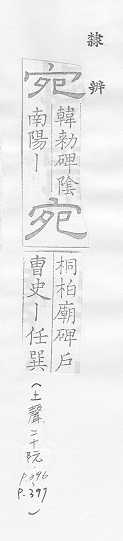 隸辨
宛
韓勑碑陰
南陽｜
宛
桐柏廟碑戶
曹史｜任巽
(上聲二十阮.
p.396
p.397)